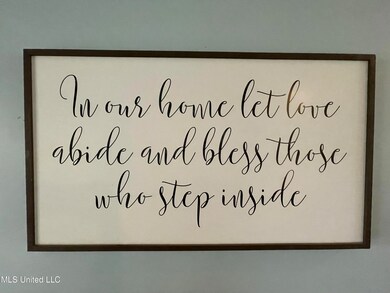 In our home let love
abide and bless those
who step inside
MLS United LLC